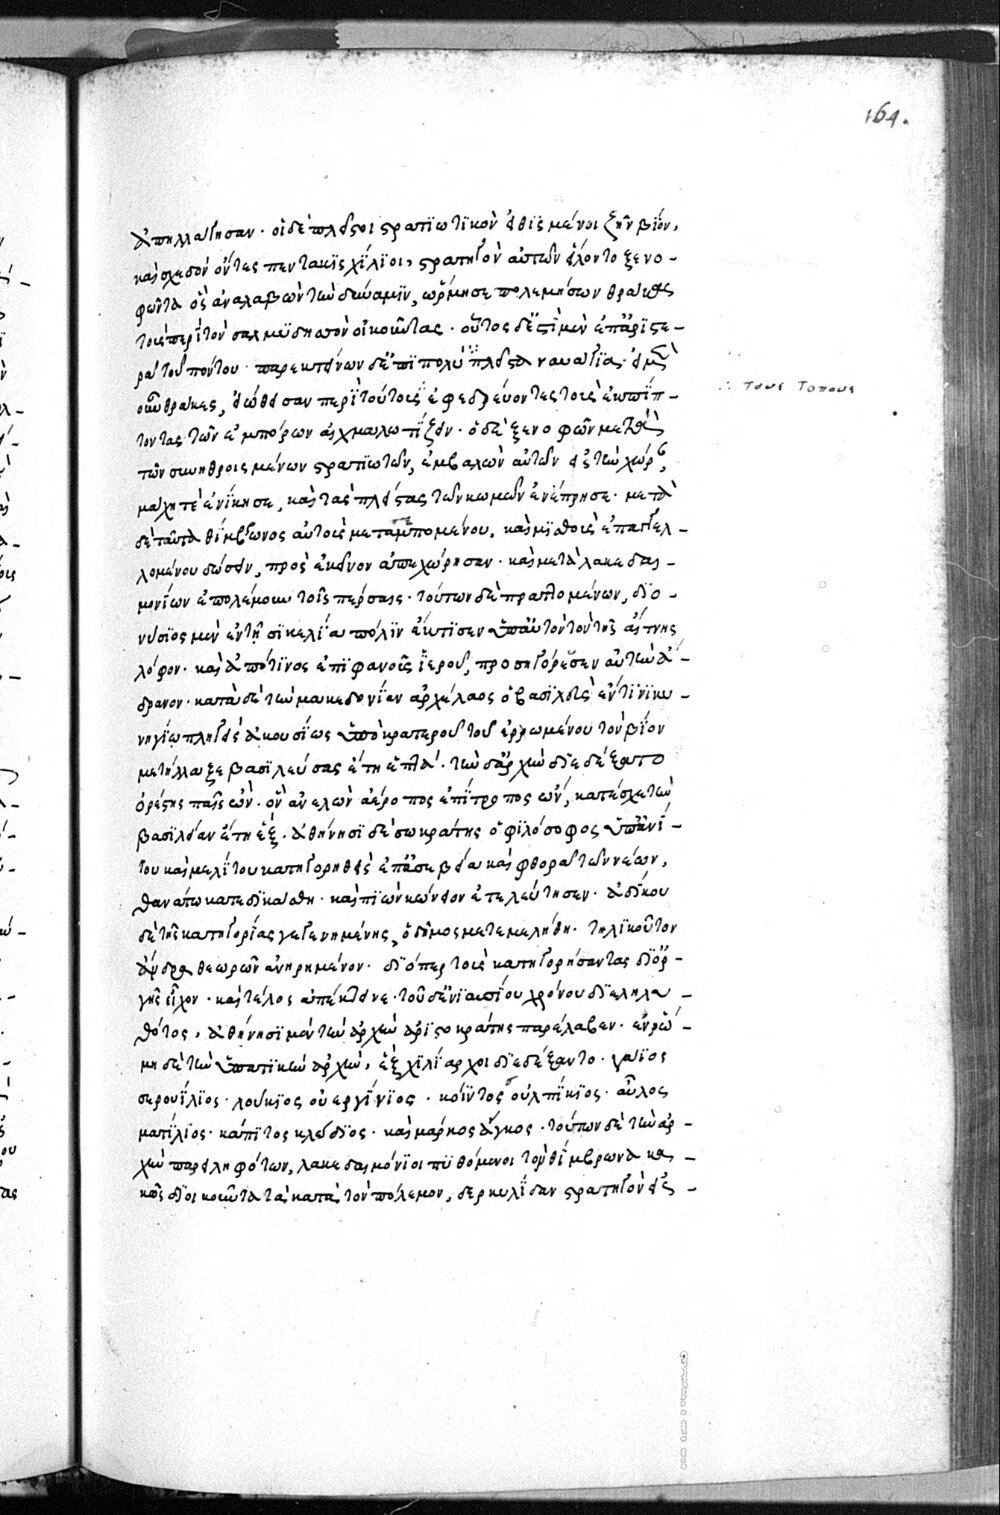 164.
ἀπηλλάγησαν· οἱ δὲ πλεῖστοι στρατϊωτϊκὸν εἰθϊσμένοι ζῆν βίον,
καὶ σχεδὸν ὄντες πεντακϊσχίλϊοι, στρατηγὸν αὐτῶν εἵλοντο ξενο-
φῶντα ὃς ἀναλαβὼν τὴν δύναμϊν, ὥρμησε πολεμήσων θρᾶκας
τοὺς περὶ τὸν σαλμυδησσὸν οἰκοῦντας· οὗτος δ' ἔστι μὲν ἐπ' ἀρϊστε-
ρᾶ τοῦ πόντου· παρεκτείνων δ' ἐπὶ πολὺ πλεῖστα ναυάγϊα· οἱ μὲν
οὖν θρᾶκες, εἰώθεισαν περὶ τούτους ἐφεδρεύοντες τοὺς ἐκπίπ-
τοντας τῶν ἐμπόρων αἰχμαλωτίζειν· ὁ δὲ ξενοφῶν μετὰ
τῶν συνηθροισμένων στρατϊωτῶν, ἐμβαλὼν αὐτῶν εἰς τὴν χώραν,
μάχη τὲ ἐνίκησε, καὶ τὰς πλείστας τῶν κωμῶν ἐνέπρησε· μετὰ
δὲ ταῦτα θίμβρωνος αὐτοὺς μεταπεμπομένου, καὶ μϊσθοὺς ἐπαγγελ-
λομένου δώσειν, πρὸς ἐκεῖνον ἀπεχώρησαν· καὶ μετὰ λακεδαι-
μονίων ἐπολέμουν τοῖς πέρσαις· τούτων δὲ πραττομένων, δϊο-
νύσϊος μὲν ἐν τῇ σϊκελία πόλϊν ἔκτϊσεν ὑπ' αὐτὸν τὸν τῆς αἴτνης
λόφον· καὶ ἀπό τϊνος ἐπϊφανοῦς ἱεροῦ, προσηγόρευσεν αὐτὴν ἄ-
δρανον· κατὰ δὲ τὴν μακεδονίαν ἀρχέλαος ὁ βασϊλεὺς ἔν τϊνϊ κυ-
νηγίω πληγεὶς ἀκουσίως ὑπὸ κρατεροῦ τοῦ ἐρρωμένου τὸν βίον
μετήλλαξε βασϊλεύσας ἔτη ἑπτά· τὴν δ' ἀρχὴν δϊεδέξατο
ὀρέστης παῖς ὤν· ὃν ἀνελὼν ἀέροπος ἐπίτροπος ὤν, κατέσχε τὴν
βασϊλείαν ἔτη ἕξ· ἀθήνησϊ δὲ σωκράτης ὁ φϊλόσοφος ὑπ' ἀνί-
του καὶ μελίτου κατηγορηθεὶς ἐπ' ἀσεβεία καὶ φθορᾶ τῶν νέων,
θανάτω κατεδϊκάσθη· καὶ πϊὼν κώνειον ἐτελεύτησεν· ἀδίκου
δὲ τῆς κατηγορίας γεγενημένης, ὁ δῆμος μετεμελήθη· τηλϊκοῦτον
ἄνδρα θεωρῶν ἀνηρημένον· δϊόπερ τοὺς κατηγορήσαντας δϊ' ὀρ-
γῆς εἶχον· καὶ τέλος ἀπέκτεινε· τοῦ δ' ἐνϊαυσίου χρόνου δϊεληλυ-
θότος, ἀθήνησϊ μὲν τὴν ἀρχὴν ἀρϊστοκράτης παρέλαβεν· ἐν ῥώ-
μη δὲ τὴν ὑπατϊκὴν ἀρχὴν, ἓξ χϊλίαρχοι δϊεδέξαντο· γάϊος
σερουίλϊος· λούκϊος οὐεργίνϊος· κόϊντος οὐλπίκϊος· αὖλος
ματίλϊος· κάπϊτος κλώδϊος· καὶ μάρκος ἄγκος· τούτων δὲ τὴν ἀρ-
χὴν παρειληφότων, λακεδαιμόνϊοι πυθόμενοι τὸν θίμβρωνα κα-
κῶς δϊοικοῦντα τὰ κατὰ τὸν πόλεμον, δερκυλίδαν στρατηγὸν εἰς-
∴ τους τοπους